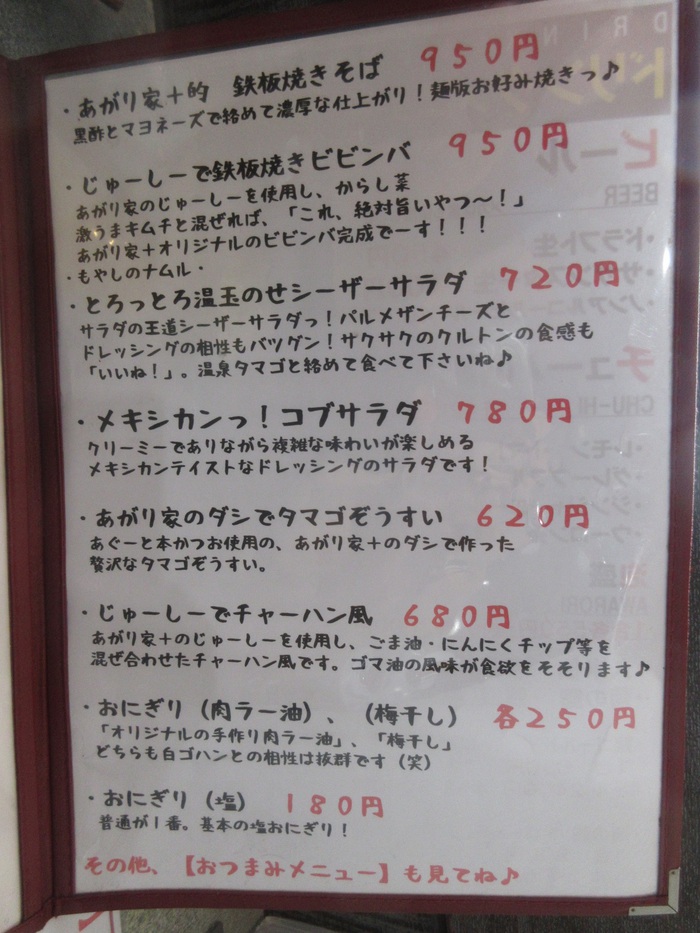 ・あがり家+的 鉄板焼きそば 950円
黒酢とマヨネーズで絡めて濃厚な仕上がり!麺版お好み焼きっ♪
・じゅーしーで鉄板焼きビビンバ 950円
あがり家のじゅーしーを使用し、からし菜
激うまキムチと混ぜれば、「これ、絶対旨いやつ〜!」
あがり家+オリジナルのビビンバ完成でーす!!!
・もやしのナムル・
・とろっとろ温玉のせシーザーサラダ 720円
サラダの王道シーザーサラダっ!パルメザンチーズと
ドレッシングの相性もバツグン!サクサクのクルトンの食感も
「いいね!」。温泉タマゴと絡めて食べて下さいね♪
・メキシカンっ!コブサラダ 780円
クリーミーでありながら複雑な味わいが楽しめる
メキシカンテイストなドレッシングのサラダです!
・あがり家のダシでタマゴぞうすい 620円
あぐーと本かつお使用の、あがり家+のダシで作った
贅沢なタマゴぞうすい。
・じゅーしーでチャーハン風 680円
あがり家+のじゅーしーを使用し、ごま油・にんにくチップ等を
混ぜ合わせたチャーハン風です。ゴマ油の風味が食欲をそそります♪
・おにぎり(肉ラー油)、(梅干し) 各250円
「オリジナルの手作り肉ラー油」、「梅干し」
どちらも白ゴハンとの相性は抜群です(笑)
・おにぎり(塩) 180円
普通が1番。基本の塩おにぎり!
その他、【おつまみメニュー】も見てね♪